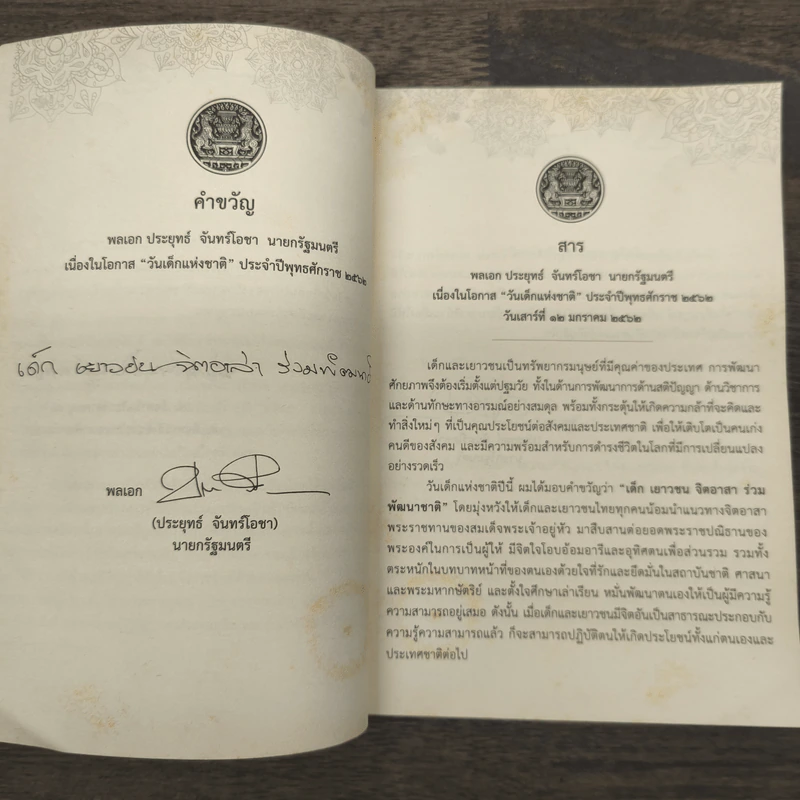 คำขวัญ
พลเอก ประยุทธ์ จันทร์โอชา นายกรัฐมนตรี
เนื่องในโอกาส “วันเด็กแห่งชาติ” ประจำปีพุทธศักราช ๒๕๖๒
เด็ก เยาวชน จิตอาสา ร่วมพัฒนาชาติ
พลเอก
(ประยุทธ์ จันทร์โอชา)
นายกรัฐมนตรี
สาร
พลเอก ประยุทธ์ จันทร์โอชา นายกรัฐมนตรี
เนื่องในโอกาส “วันเด็กแห่งชาติ” ประจำปีพุทธศักราช ๒๕๖๒
วันเสาร์ที่ ๑๒ มกราคม ๒๕๖๒
เด็กและเยาวชนเป็นทรัพยากรมนุษย์ที่มีคุณค่าของประเทศ การพัฒนา
ศักยภาพจึงต้องเริ่มตั้งแต่ปฐมวัย ทั้งในด้านการพัฒนาการด้านสติปัญญา ด้านวิชาการ
และด้านทักษะทางอารมณ์อย่างสมดุล พร้อมทั้งกระตุ้นให้เกิดความกล้าที่จะคิดและ
ทำสิ่งใหม่ๆ ที่เป็นคุณประโยชน์ต่อสังคมและประเทศชาติ เพื่อให้เติบโตเป็นคนเก่ง
คนดีของสังคม และมีความพร้อมสำหรับการดำรงชีวิตในโลกที่มีการเปลี่ยนแปลง
อย่างรวดเร็ว
วันเด็กแห่งชาติปีนี้ ผมได้มอบคำขวัญว่า “เด็ก เยาวชน จิตอาสา ร่วม
พัฒนาชาติ” โดยมุ่งหวังให้เด็กและเยาวชนไทยทุกคนน้อมนำแนวทางจิตอาสา
พระราชทานของสมเด็จพระเจ้าอยู่หัว มาสืบสานต่อยอดพระราชปณิธานของ
พระองค์ในการเป็นผู้ให้ มีจิตใจโอบอ้อมอารีและอุทิศตนเพื่อส่วนรวม รวมทั้ง
ตระหนักในบทบาทหน้าที่ของตนเองด้วยใจที่รักและยึดมั่นในสถาบันชาติ ศาสนา
และพระมหากษัตริย์ และตั้งใจศึกษาเล่าเรียน หมั่นพัฒนาตนเองให้เป็นผู้มีความรู้
ความสามารถอยู่เสมอ ดังนั้น เมื่อเด็กและเยาวชนมีจิตอันเป็นสาธารณะประกอบกับ
ความรู้ความสามารถแล้ว ก็จะสามารถปฏิบัติตนให้เกิดประโยชน์ทั้งแก่ตนเองและ
ประเทศชาติต่อไป